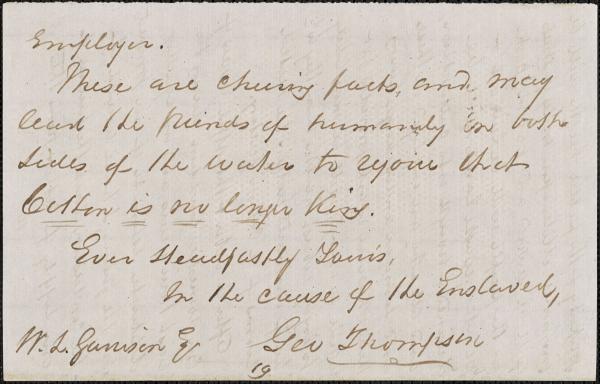 Employer.
These are cheering facts, and may
lead the friends of humanity on both
sides of the water to rejoice that
Cotton is no longer King.
Ever steadfastly Yours,
In the cause of the Enslaved,
W. L. Garrison Esq Geo Thompson
19